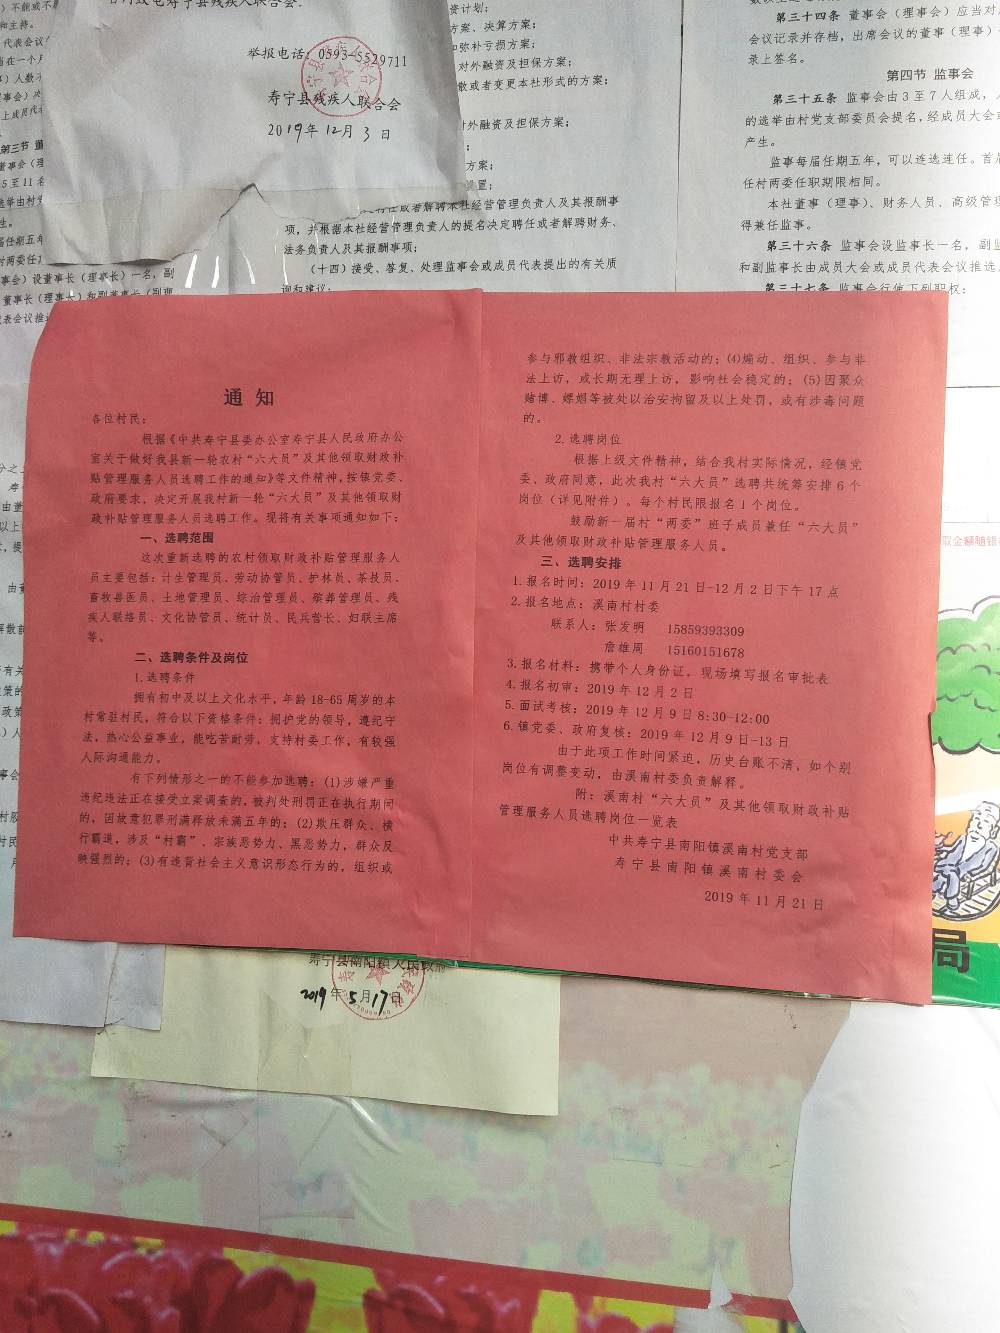 举报电话：0593-5529711
寿宁县残疾人联合会
2019年12月3日
资计划；
方案、决算方案；
和弥补亏损方案；
对外融资及担保方案；
散或者变更本社形式的方案；
对外融资及担保方案；
方案；
设置；
聘任或者解聘本社经营管理负责人及其报酬事
项，并根据本社经营管理负责人的提名决定聘任或者解聘财务、
法务负责人及其报酬事项；
（十四）接受、答复、处理监事会或成员代表提出的有关质
询和建议；
第三十四条 董事会（理事会）应当对
会议记录并存档，出席会议的董事（理事）
录上签名。
第四节 监事会
第三十五条 监事会由3至7人组成，
的选举由村党支部委员会提名，经成员大会或
产生。
监事每届任期五年，可以连选连任。首届
任村两委任职期限相同。
本社董事（理事）、财务人员、高级管理
得兼任监事。
第三十六条 监事会设监事长一名，副监
和副监事长由成员大会或成员代表会议推选
第三十七条 监事会行使下列职权：
通知
各位村民：
根据《中共寿宁县委办公室寿宁县人民政府办公
室关于做好我县新一轮农村“六大员”及其他领取财政补
贴管理服务人员选聘工作的通知》等文件精神，按镇党委、
政府要求，决定开展我村新一轮“六大员”及其他领取财
政补贴管理服务人员选聘工作。现将有关事项通知如下：
一、选聘范围
这次重新选聘的农村领取财政补贴管理服务人
员主要包括：计生管理员、劳动协管员、护林员、茶技员、
畜牧兽医员、土地管理员、综治管理员、殡葬管理员、残
疾人联络员、文化协管员、统计员、民兵营长、妇联主席
等。
二、选聘条件及岗位
1.选聘条件
拥有初中及以上文化水平，年龄18-65周岁的本
村常驻村民，符合以下资格条件：拥护党的领导，遵纪守
法，热心公益事业，能吃苦耐劳，支持村委工作，有较强
人际沟通能力。
有下列情形之一的不能参加选聘：(1)涉嫌严重
违纪违法正在接受立案调查的，被判处刑罚正在执行期间
的，因故意犯罪刑满释放未满五年的；(2)欺压群众、横
行霸道，涉及“村霸”、宗族恶势力、黑恶势力，群众反
映强烈的；(3)有违背社会主义意识形态行为的，组织或
参与邪教组织、非法宗教活动的；(4)煽动、组织、参与非
法上访，或长期无理上访，影响社会稳定的；(5)因聚众
赌博、嫖娼等被处以治安拘留及以上处罚，或有涉毒问题
的。
2.选聘岗位
根据上级文件精神，结合我村实际情况，经镇党
委、政府同意，此次我村“六大员”选聘共统筹安排6个
岗位（详见附件）。每个村民限报名1个岗位。
鼓励新一届村“两委”班子成员兼任“六大员”
及其他领取财政补贴管理服务人员。
三、选聘安排
1.报名时间：2019年11月21日-12月2日下午17点
2.报名地点：溪南村村委
联系人：张发明 15859393309
詹雄周 15160151678
3.报名材料：携带个人身份证，现场填写报名审批表
4.报名初审：2019年12月2日
5.面试考核：2019年12月9日8:30-12:00
6.镇党委、政府复核：2019年12月9日-13日
由于此项工作时间紧迫，历史台账不清，如个别
岗位有调整变动，由溪南村委负责解释。
附：溪南村“六大员”及其他领取财政补贴
管理服务人员选聘岗位一览表
中共寿宁县南阳镇溪南村党支部
寿宁县南阳镇溪南村委会
2019年11月21日
寿宁县南阳镇人民政府
2019年5月17日
取金额随银
局